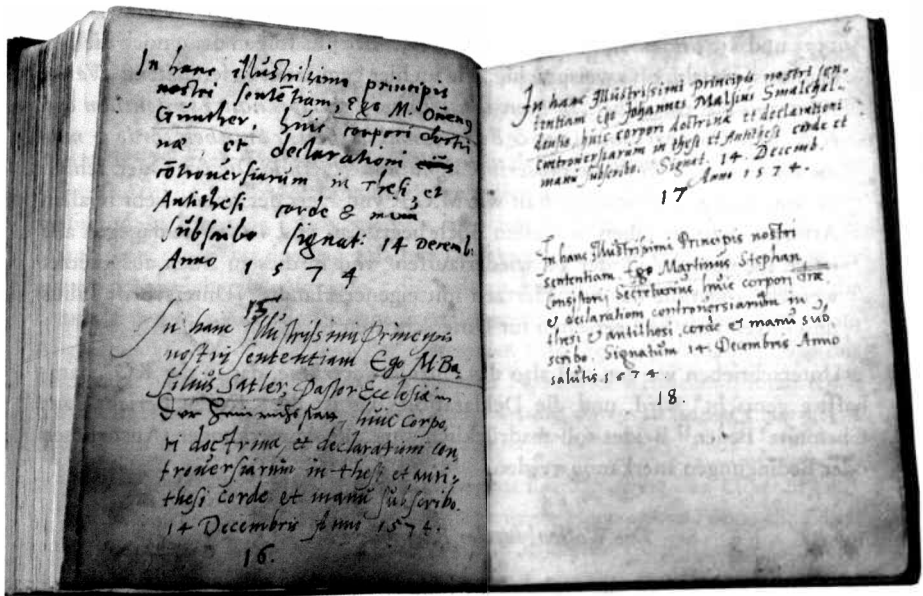 In hanc illustrissimi principis
nostri sententiam, Ego M.
Gunther, huic corpori doctri
næ, et declarationi
cõtrouersiarum in Thesi, et
Antithesi corde & manu
subscribo signat: 14 Decemb:
Anno 1574
15
In hanc Illustrissimi Principis
nostri sententiam Ego M Ba-
silius Satler, Pastor Ecclesiæ in
der Heinrichstat, huic corpo,
ri doctrinæ et declarationi con
trouersiarum in thesi et anti-
thesi corde et manu subscribo.
14 Decembris Anni 1574.
16.
6
In hanc Illustrissimi principis nostri sen-
tentiam Ego Johannes Malsius Smalchal-
densis, huic corpori doctrinæ et declarationi
controuersiarum in thesi et Antithesi corde et
manu subscribo. Signat. 14. Decemb.
Anno 1574.
17
In hanc Illustrissimi Principis nostri
sententiam Ego Martinus Stephan
Consistorij Secretarius huic corpori
& declarationi controuersiarum in
thesi & antithesi corde et manu sub
scribo. Signatum 14 Decembris Anno
salutis 1574.
18.